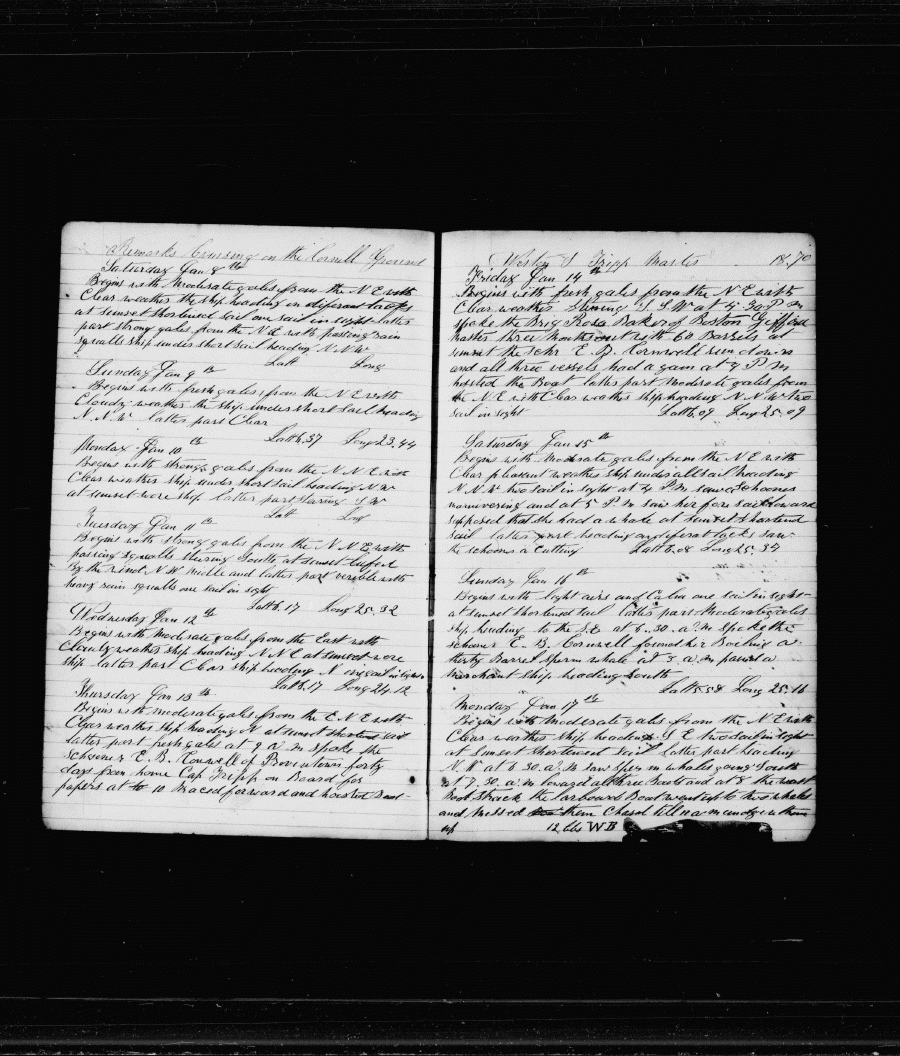 Remarks Cruising on the Cornell Ground
Saturday Jan 8th
Begins with Moderate gales from the N E with
Clear weather the ship heading on diferant tacks
at sunset shortened sail one sail in sight latter
part strong gales from the N E with passing rain
squalls ship under short sail heading N N W
Latt Long
Sunday Jan 9th
Begins with fresh gales from the N E with
Cloudy weather the ship under short sail heading
N N W latter part Clear
Latt 6.37 Long 23.44
Monday Jan 10th
Begins with strong gales from the N N E with
Clear weather ship under short sail heading N W
at sunset wore ship latter part S W
Latt Long
Tuesday Jan 11th
Begins with strong gales from the N N E with
passing squalls Stering South at sunset luffed
By the wind N W Midle and latter part verible with
heavy rain squalls one sail in sight
Latt 6.17 Long 25.32
Wednesday Jan 12th
Begins with Moderate gales from the East with
Cloudy weather ship heading N N E at sunset wore
ship latter part Clear ship heading N one sail in sight
Latt 6.17 Long 24.12
Thursday Jan 13th
Begins with moderate gales from the E N E with
Clear weather ship heading N at sunset shortened sail
latter part fresh gales at 9 a m spoke the
Schooner E. B. Conwell of Provintown forty
days from home Cap Tripp on Board for
papers at 10 Braced forward and hoisted Boat
Weston S Tripp Master 1870
Friday Jan 14th
Begins with fresh gales from the N E with
Clear weather Stering S S W at P M
spoke the Brig Rosa Baker of Boston Gifford
master three Months out with 60 Barrels at
sunset the Schr E. B. Cornwell run down
and all three vessels had a gam at 9 P M
hoisted the Boat latter part Moderate gales from
the N E with Clear weather ship heading N N W two
sail in sight Latt 6.09 Long 25.09
Saturday Jan 15th
Begins with Moderate gales from the N E with
Clear pleasant weather ship under all sail heading
N N W two sail in sight at 4 P M saw a Schooner
manuvering and at 5 P M saw her fore sail
supposed that she had a whale at sunset shortened
sail latter part heading on diferat tacks saw
the schooner a Cutting Latt 6.08 Long 25.34
Sunday Jan 16th
Begins with light airs and Calm one sail in sight
at sunset shortened sail latter part Moderate gales
ship heading to the S.E. at 6.30 a.m spoke the
schoner E. B. Cornwell found her Boiling a
thirty Barrel sperm whale at 3 a m passed a
Merchant ship heading South
Latt 5.58 Long 25.16
Monday Jan 17th
Begins with Moderate gales from the N E with
Clear weather ship heading S E two sail in sight
at sunset shortened sail latter part heading
N W at 6.30 a.m saw sperm whales going South
at 7.30 a.m lowered all three Boats and at 8 the waist
Boat Struck the larboard Boat went up to two whales
and missed them Chased till 11 a m and gave them
up 12 bbs W B